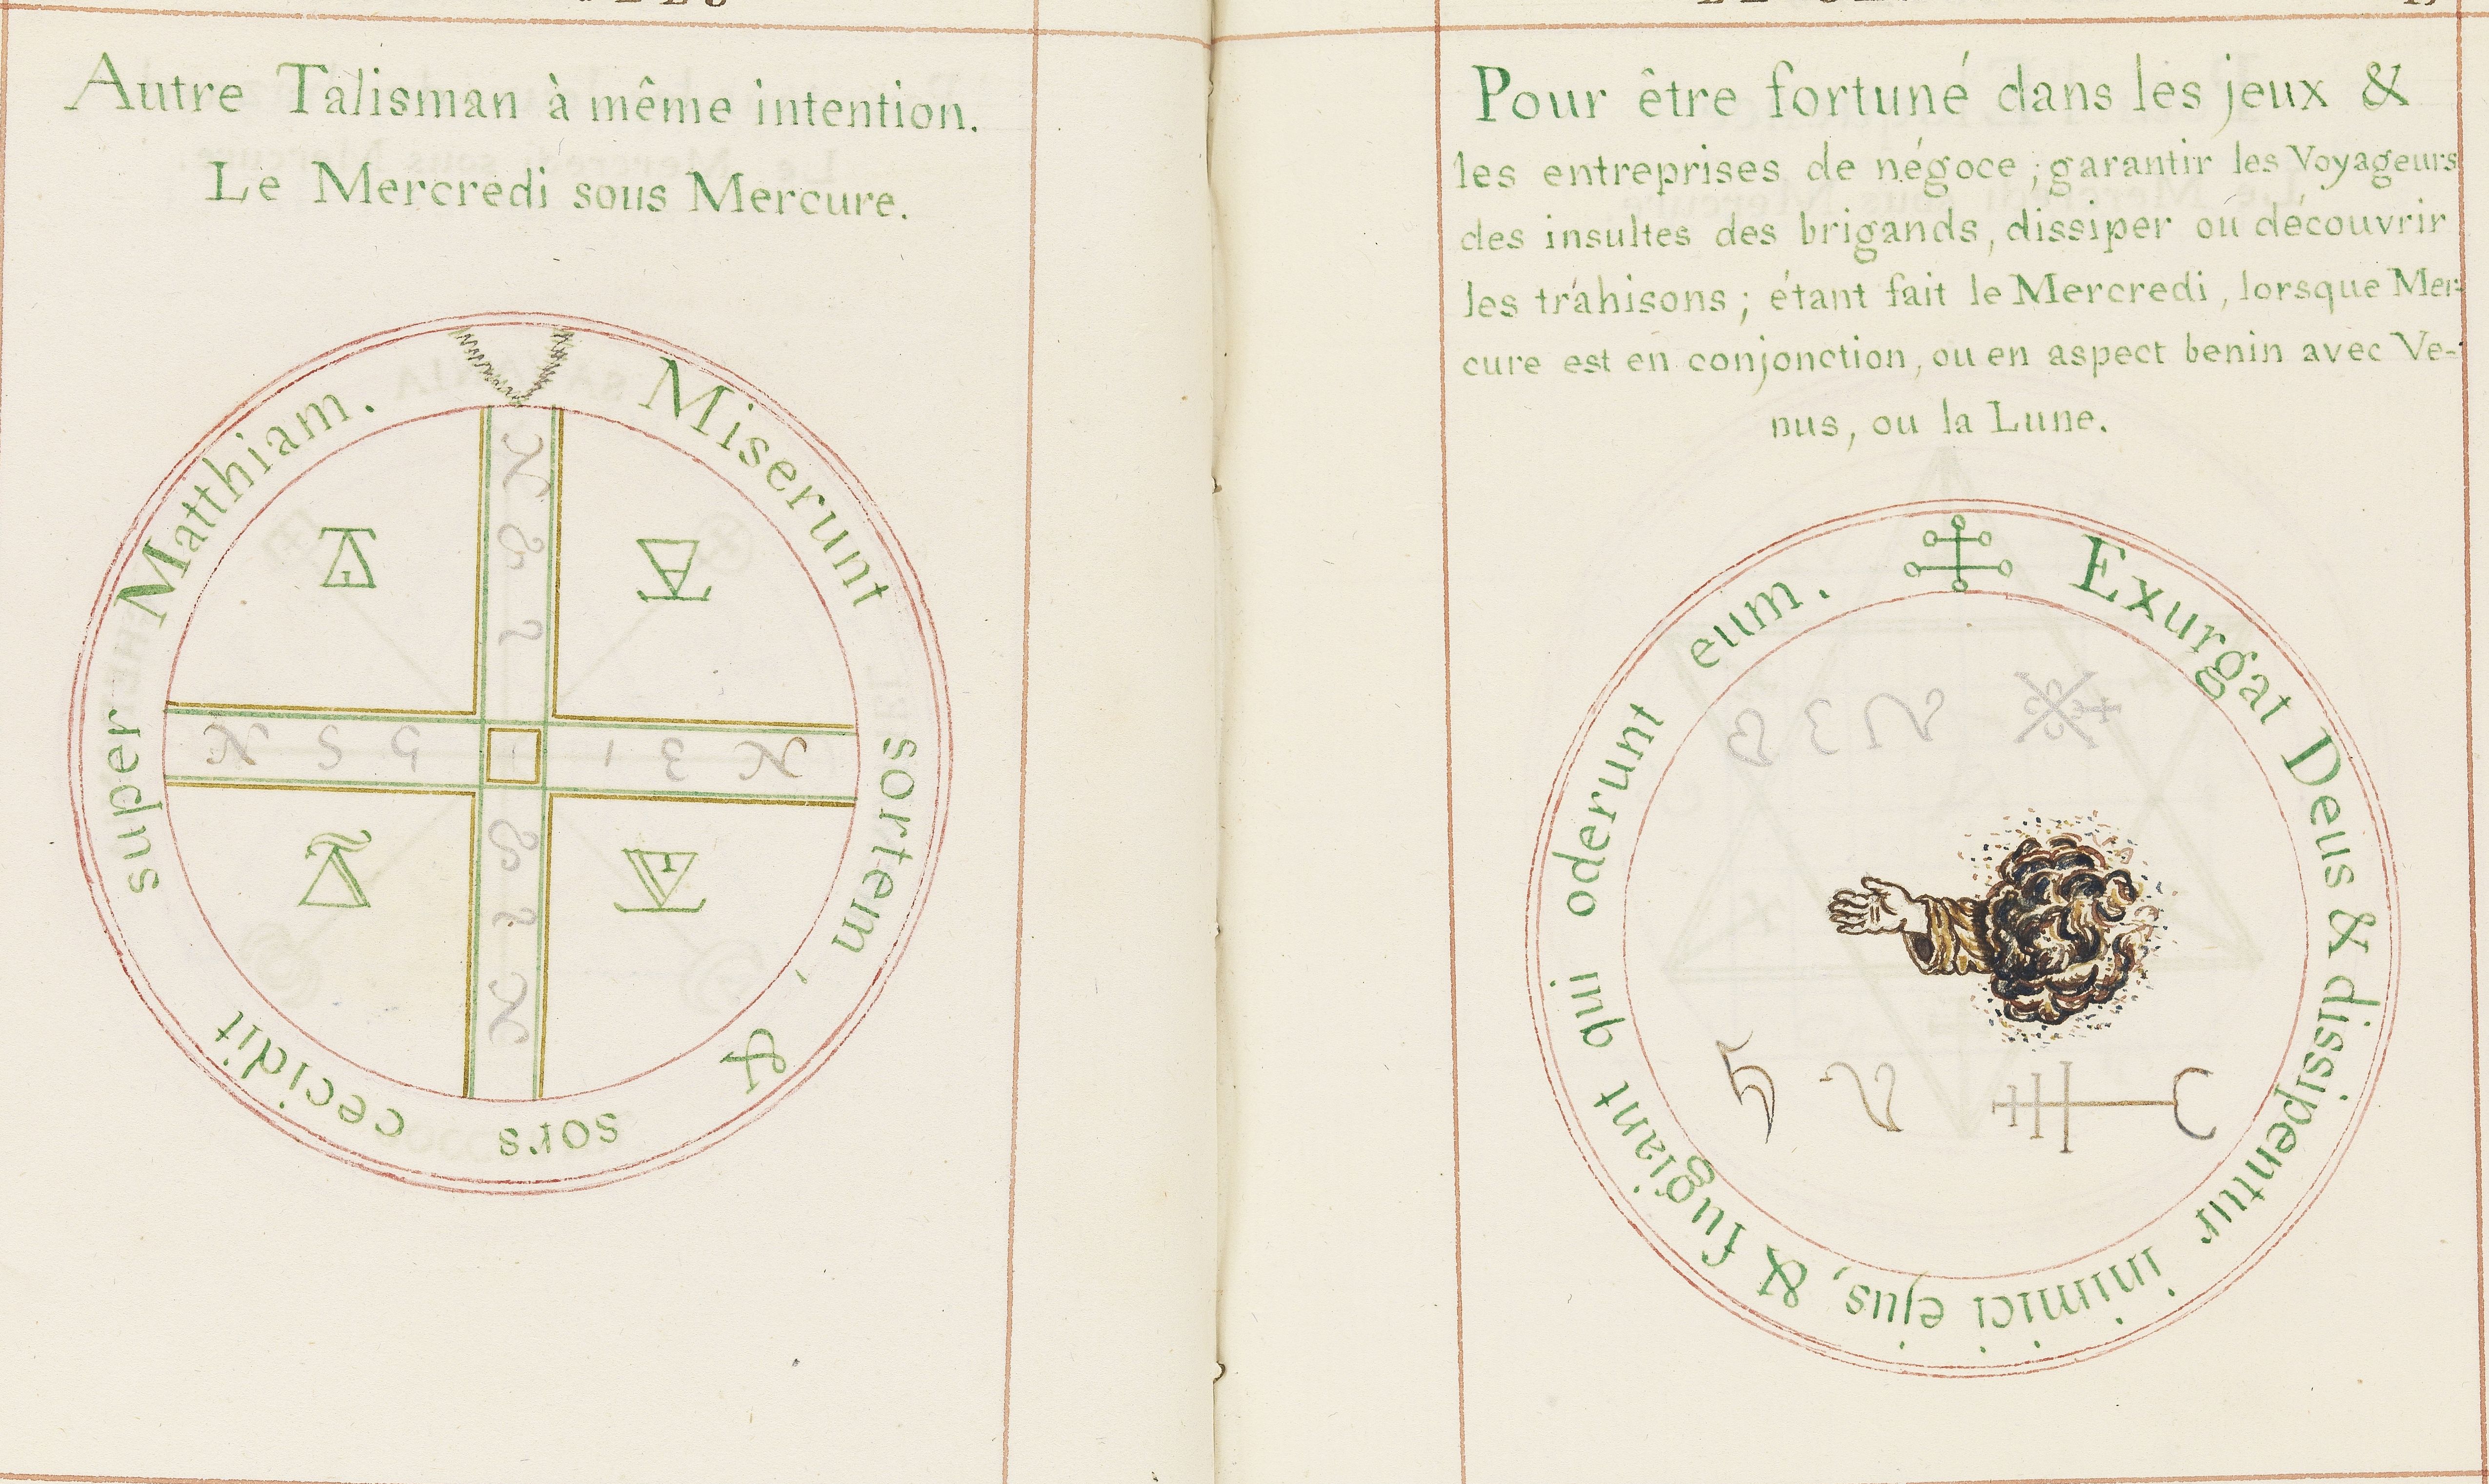 Autre Talisman à même intention.
Le Mercredi sous Mercure.
Miserunt sortem, & sors cecidit super Matthiam.
Pour être fortuné dans les jeux &
les entreprises de négoce; garantir les Voyageurs
des insultes des brigands, dissiper ou découvrir
les trahisons; étant fait le Mercredi, lorsque Mer=
cure est en conjonction, ou en aspect benin avec Ve-
nus, ou la Lune.
Exurgat Deus & dissipentur inimici ejus, & fugiant qui oderunt eum.